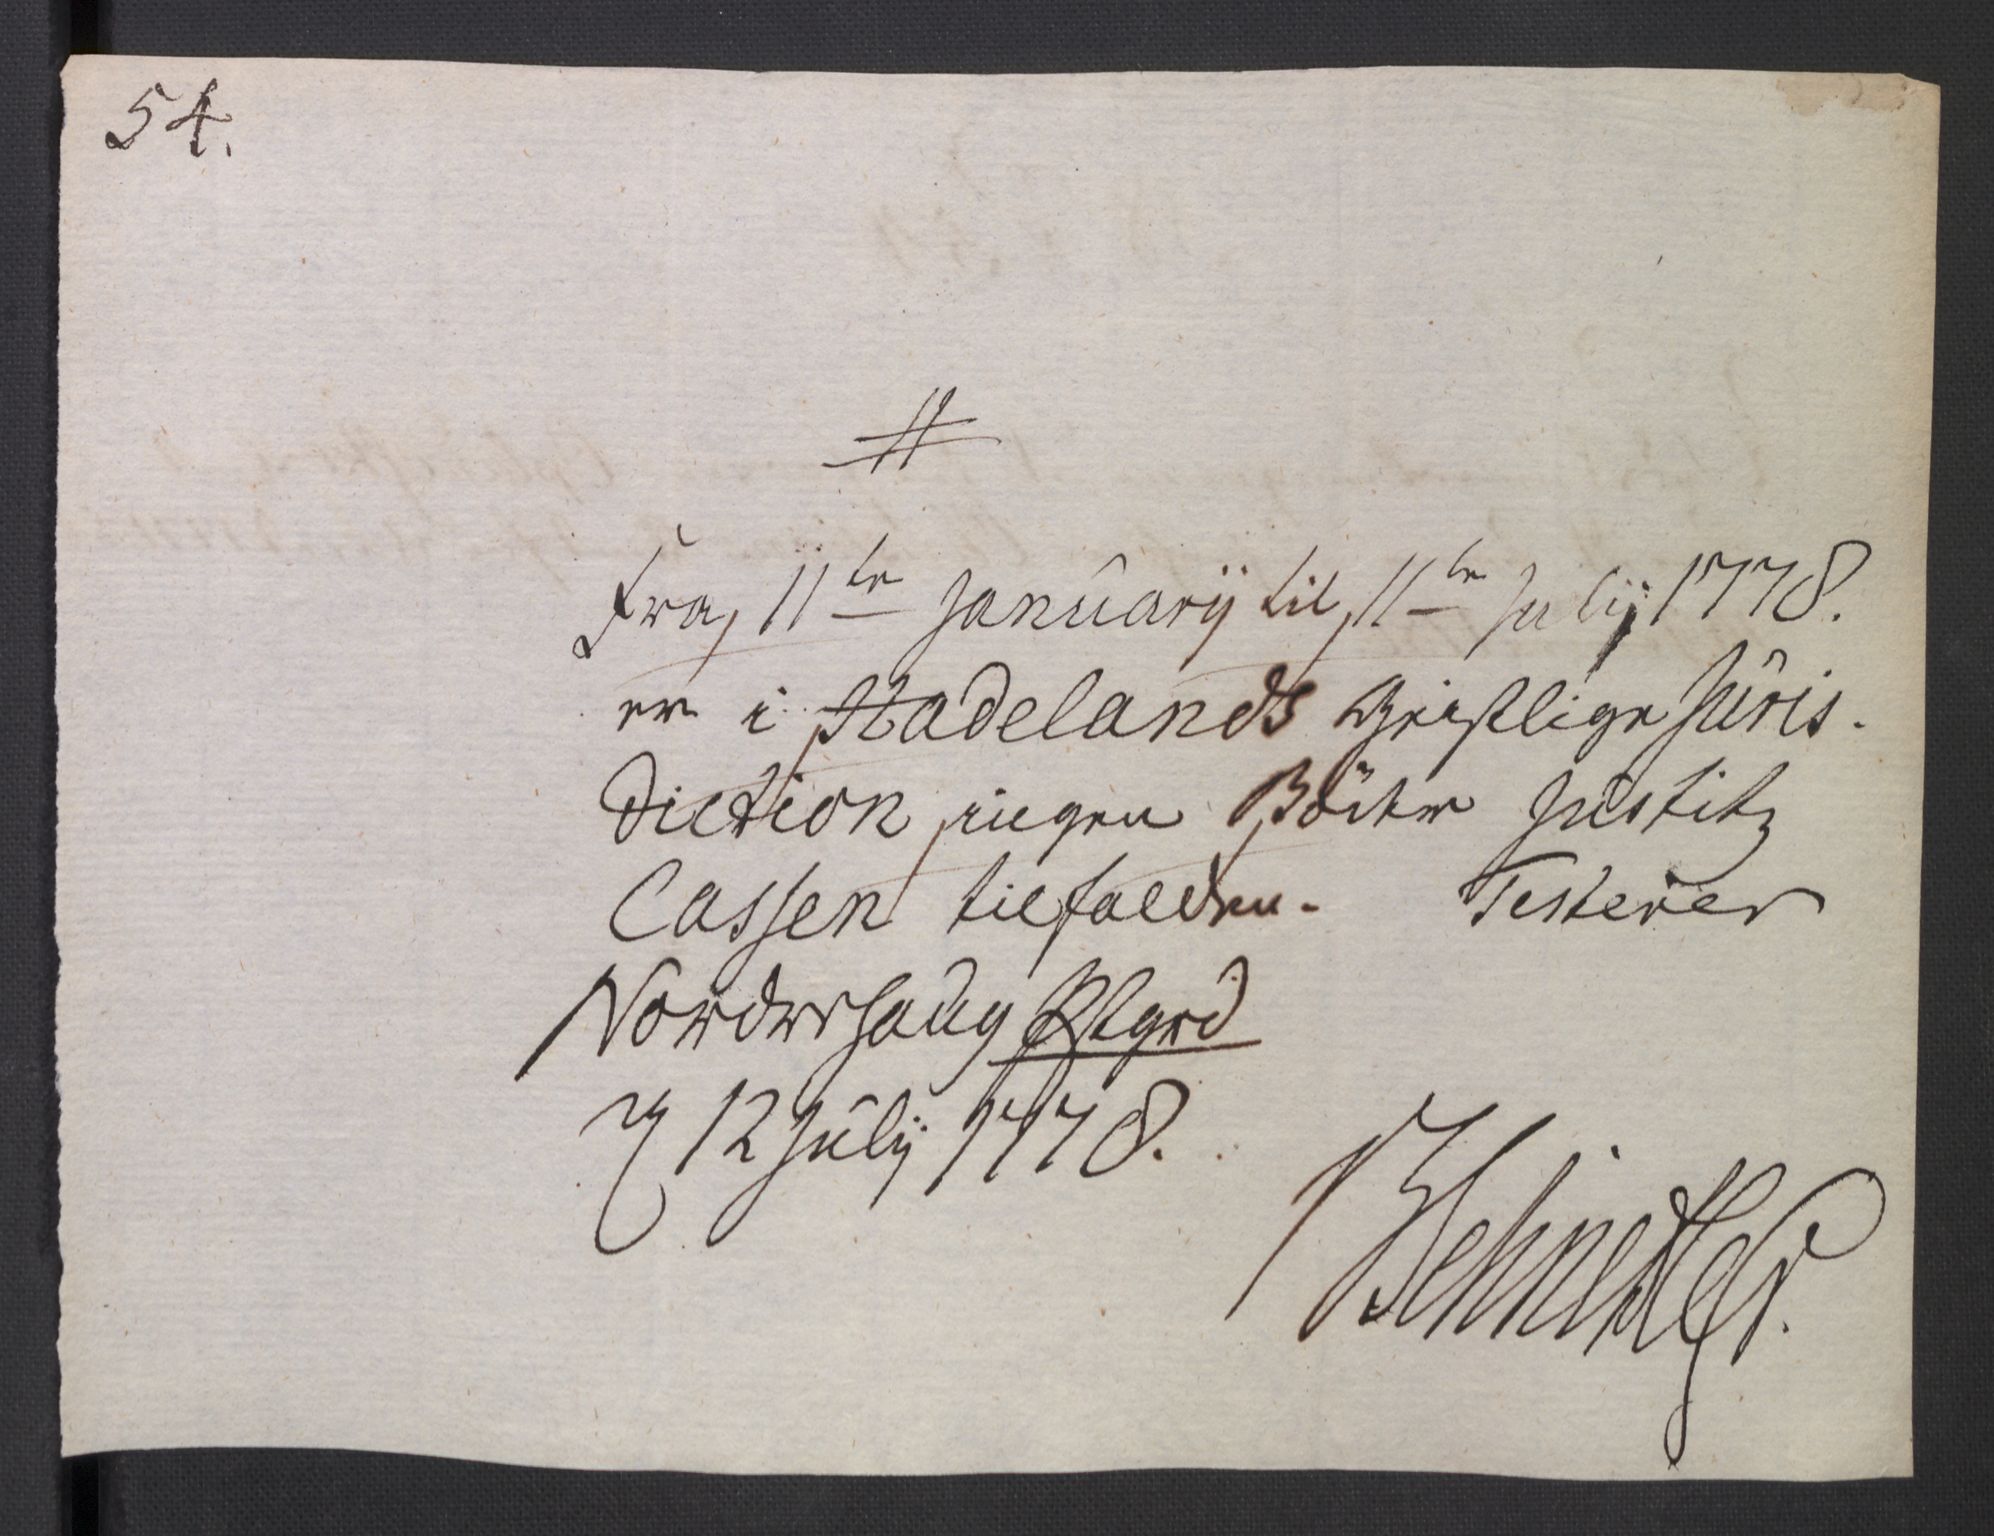 54.
#
Fra 11te Januarij til 11te Julij 1778.
er i Hadelands Geistlige Juris-
diction ingen Bøder Justitz
Cassen tilfalden. Testerer
Norderhaug Pstgrd
d 12 Julij 1778.